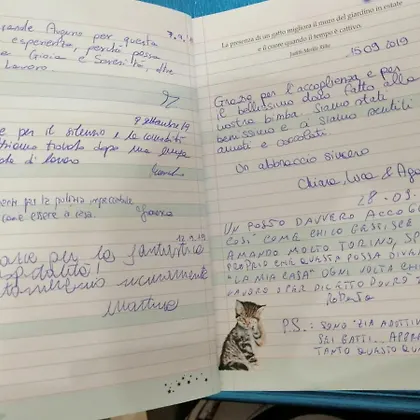 7.9.19
grande Augurio per questa
esperienza, perchè possa
Gioia e Serenità, oltre
Lavoro.
9 settembre 19
e per il silenzio e la comodità
trovato dopo una lunga
di lavoro
per la pulizia impeccabile
come essere a casa.
12.9.19
per la fantastica
ospitalità!
Ritorneremo sicuramente
Martina
La presenza di un gatto migliora il muro del giardino in estate
e il cuore quando il tempo è cattivo.
15.09.2019
Grazie per l'accoglienza e per
il bellissimo dono fatto alla
nostra bimba. Siamo stati
benissimo e ci siamo sentiti
amati e coccolati.
Un abbraccio sincero
Chiara, Luca &
28.09.
UN POSTO DAVVERO ACCOG
COSÌ COME CHI LO GESTISCE
AMANDO MOLTO TORINO, SP
PROPRIO CHE QUESTA POSSA DIVEN
"LA MIA CASA" OGNI VOLTA CH
ROBERTA
P.S.: SONO "ZIA ADOTTIV
SEI GATTI... APPR
TANTO QUESTO QU